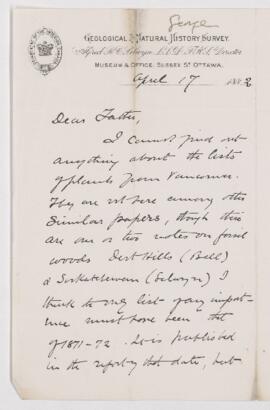 George
GEOLOGICAL & NATURAL HISTORY SURVEY.
Alfred R. C. Selwyn, L.L.D., F.R.S., Director
MUSEUM & OFFICE, SUSSEX ST OTTAWA.
April 17 1883
Dear Father,
I cannot find out
anything about the lists
of plants from Vancouver.
They are not here among other
Similar papers, though there
are one or two notes on fossil
woods Dirt Hills (Bell)
& Saskatchewan (Selwyn) I
think the only list of any import-
ance must have been that
of 1871-72. It is published
in the report of that date, but